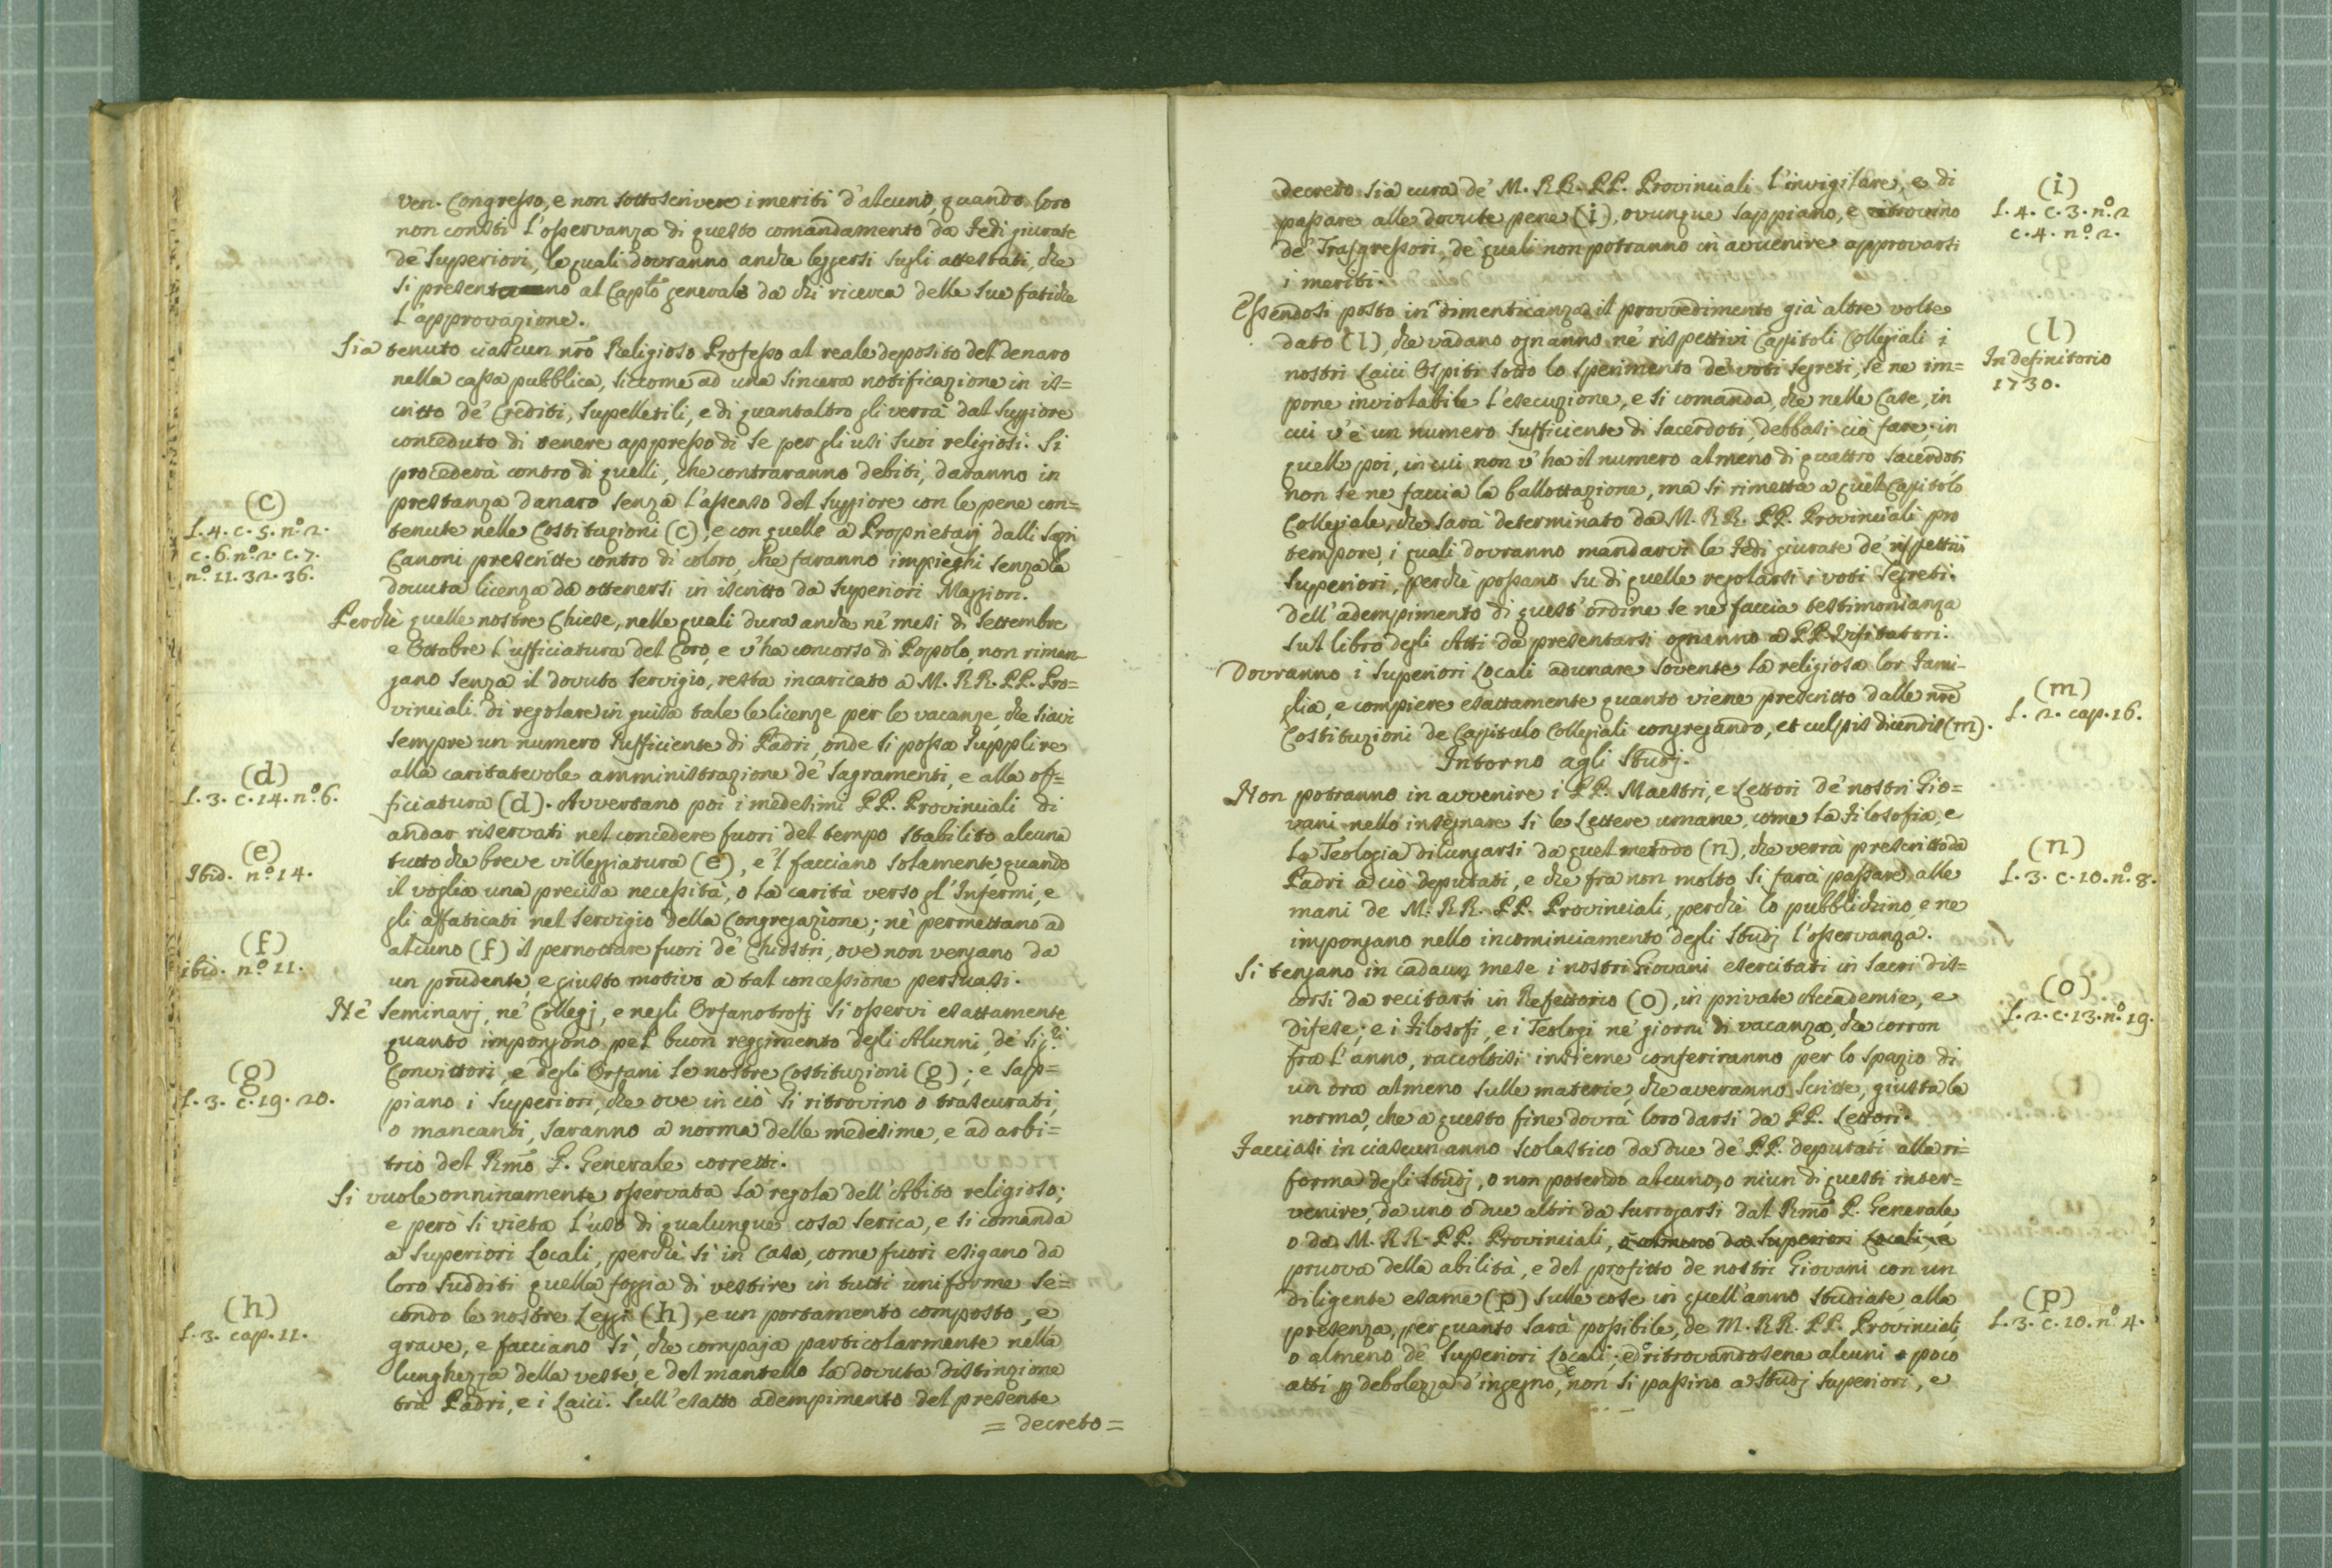 ven. Congresso, e non sottoscrivere i meriti d'alcuno, quando loro
non consti l'osservanza di questo comandamento da Fedi giurate
de' Superiori, le quali dovranno anche leggersi sugli attestati, che
si presentano al Caplo generale da chi ricerca delle sue fatiche
l'approvazione.
Sia tenuto ciascun nrõ Religioso Professo al reale deposito del denaro
nella cassa pubblica, siccome ad una sincera notificazione in is=
critto de' Crediti, supelletili, e di quant'altro gli verrà dal Suppiore
conceduto di tenere appresso di se per gli usi suoi religiosi. Si
procederà contro di quelli, che contraranno debiti, daranno in
prestanza danaro senza l'assenso del Suppiore con le pene con=
(c)
L. 4. c. 5. nº. 2.
c. 6. nº. 2. c. 7.
nº. 11. 32. 36.
tenute nelle Costituzioni (c), e con quelle a Proprietarj dalli Sagri
Canoni prescritte contro di coloro, che faranno impieghi senza la
dovuta licenza da ottenersi in iscritto da Superiori Maggiori.
Perchè quelle nostre Chiese, nelle quali dura anche ne' mesi di Settembre
e Ottobre l'ufficiatura del Coro, e v'ha concorso di Popolo, non riman
gano senza il dovuto servigio, resta incaricato a M. RR. PP. Pro=
vinciali di regolare in guisa tale le licenze per le vacanze, che siavi
sempre un numero sufficiente di Padri, onde si possa supplire
alla caritatevole amministrazione de' Sagramenti, e alla of=
(d)
L. 3. c. 14. nº. 6.
ficiatura (d). Avvertano poi i medesimi PP. Provinciali di
andar riservati nel concedere fuori del tempo stabilito alcuna
(e)
Ibid. nº. 14.
tutto che breve villeggiatura (e), e 'l facciano solamente, quando
il voglia una precisa necessità, o la carità verso gl'Infermi, e
gli affaticati nel servigio della Congregazione; nè permettano ad
(f)
ibid. nº. 11.
alcuno (f) il pernottare fuori de' Chiostri, ove non vengano da
un prudente, e giusto motivo a tal concessione persuasi.
Ne' Seminarj, ne' Collegj, e negli Orfanotrofj si osservi esattamente
quanto impongono pel buon reggimento degli Alunni, de' Sig.ri
(g)
L. 3. c. 19. 20.
Convittori, e degli Orfani le nostre Costituzioni (g); e sap=
piano i Superiori, che ove in ciò si ritrovino o trascurati,
o mancanti, saranno a norma delle medesime, e ad arbi=
trio del Rmõ P. Generale corretti.
Si vuole onninamente osservata la regola dell'Abito religioso;
e però si vieta l'uso di qualunque cosa serica, e si comanda
a Superiori Locali, perchè sì in Casa, come fuori esigano da
loro sudditi quella foggia di vestire in tutti uniforme se=
(h)
L. 3. cap. 11.
condo le nostre Leggi (h), e un portamento composto, e
grave, e facciano sì, che compaja particolarmente nella
lunghezza della veste, e del mantello la dovuta distinzione
trà Padri, e i Laici. Sull'esatto adempimento del presente
= decreto =
decreto sia cura de' M. RR. PP. Provinciali l'invigilare, e di
(i)
L. 4. c. 3. nº. 2
c. 4. nº. 2.
passare alle dovute pene (i), ovunque sappiano, e ritrovino
de' Trasgressori, de' quali non potranno in avvenire approvarsi
i meriti.
Essendosi posto in dimenticanza il provvedimento già altre volte
(l)
In definitorio
1730.
dato (l), che vadano ogn'anno ne' rispettivi Capitoli Collegiali i
nostri Laici Ospiti sotto lo sperimento de' voti segreti, se ne im=
pone inviolabile l'esecuzione, e si comanda, che nelle Case, in
cui v'è un numero sufficiente di Sacerdoti, debbasi ciò fare; in
quelle poi, in cui non v'ha il numero almeno di quattro Sacerdoti,
non se ne faccia la ballottazione, ma si rimetta a quel Capitolo
Collegiale, che sarà determinato da M. RR. PP. Provinciali pro
tempore, i quali dovranno mandarvi le Fedi giurate de' rispettivi
Superiori, perchè possano su di quelle regolarsi i voti segreti.
Dell'adempimento di quest'ordine se ne faccia testimonianza
sul libro degli Atti da presentarsi ogn'anno a PP. Visitatori.
Dovranno i Superiori Locali adunare sovente la religiosa lor Fami-
glia, e compiere esattamente quanto viene prescritto dalle nrẽ
(m)
L. 2. cap. 16.
Costituzioni de Capitulo Collegiali congregando, et culpis dicendis (m).
Intorno agli Studj.
Non potranno in avvenire i PP. Maestri, e Lettori de' nostri Gio=
vani nello insegnare sì le Lettere umane, come la Filosofia, e
(n)
L. 3. c. 10. nº. 8.
La Teologia dilungarsi da quel metodo (n), che verrà prescritto da
Padri a ciò deputati, e che fra non molto si farà passare alle
mani de M. RR. PP. Provinciali, perchè lo pubblichino, e ne
impongano nello incominciamento degli Studj l'osservanza.
Si tengano in cadaun mese i nostri Giovani esercitati in sacri dis=
(o)
L. 2. c. 13. nº. 19.
corsi da recitarsi in Refettorio (o), in private Accademie, e
difese; e i Filosofi, e i Teologi ne' giorni di vacanza, che corron
fra l'anno, raccoltisi insieme conferiranno per lo spazio di
un ora almeno sulle materie, che averanno scritte, giusta la
norma, che a questo fine dovrà loro darsi da PP. Lettori.
Facciasi in ciascun anno scolastico da due de' PP. deputati alla ri=
forma degli Studj, o non potendo alcuno, o niun di questi inter=
venire, da uno o due altri da surrogarsi dal Rmõ P. Generale,
o da M. RR. PP. Provinciali, o almeno da Superiori Locali, la
pruova della abilità, e del profitto de nostri Giovani con un
(p)
L. 3. c. 10. nº. 4.
diligente esame (p) sulle cose in quell'anno studiate, alla
presenza, per quanto sarà possibile, de M. RR. PP. Provinciali,
o almeno de' Superiori Locali; e ritrovandosene alcuni poco
atti per debolezza d'ingegno, non si passino a Studj superiori, e